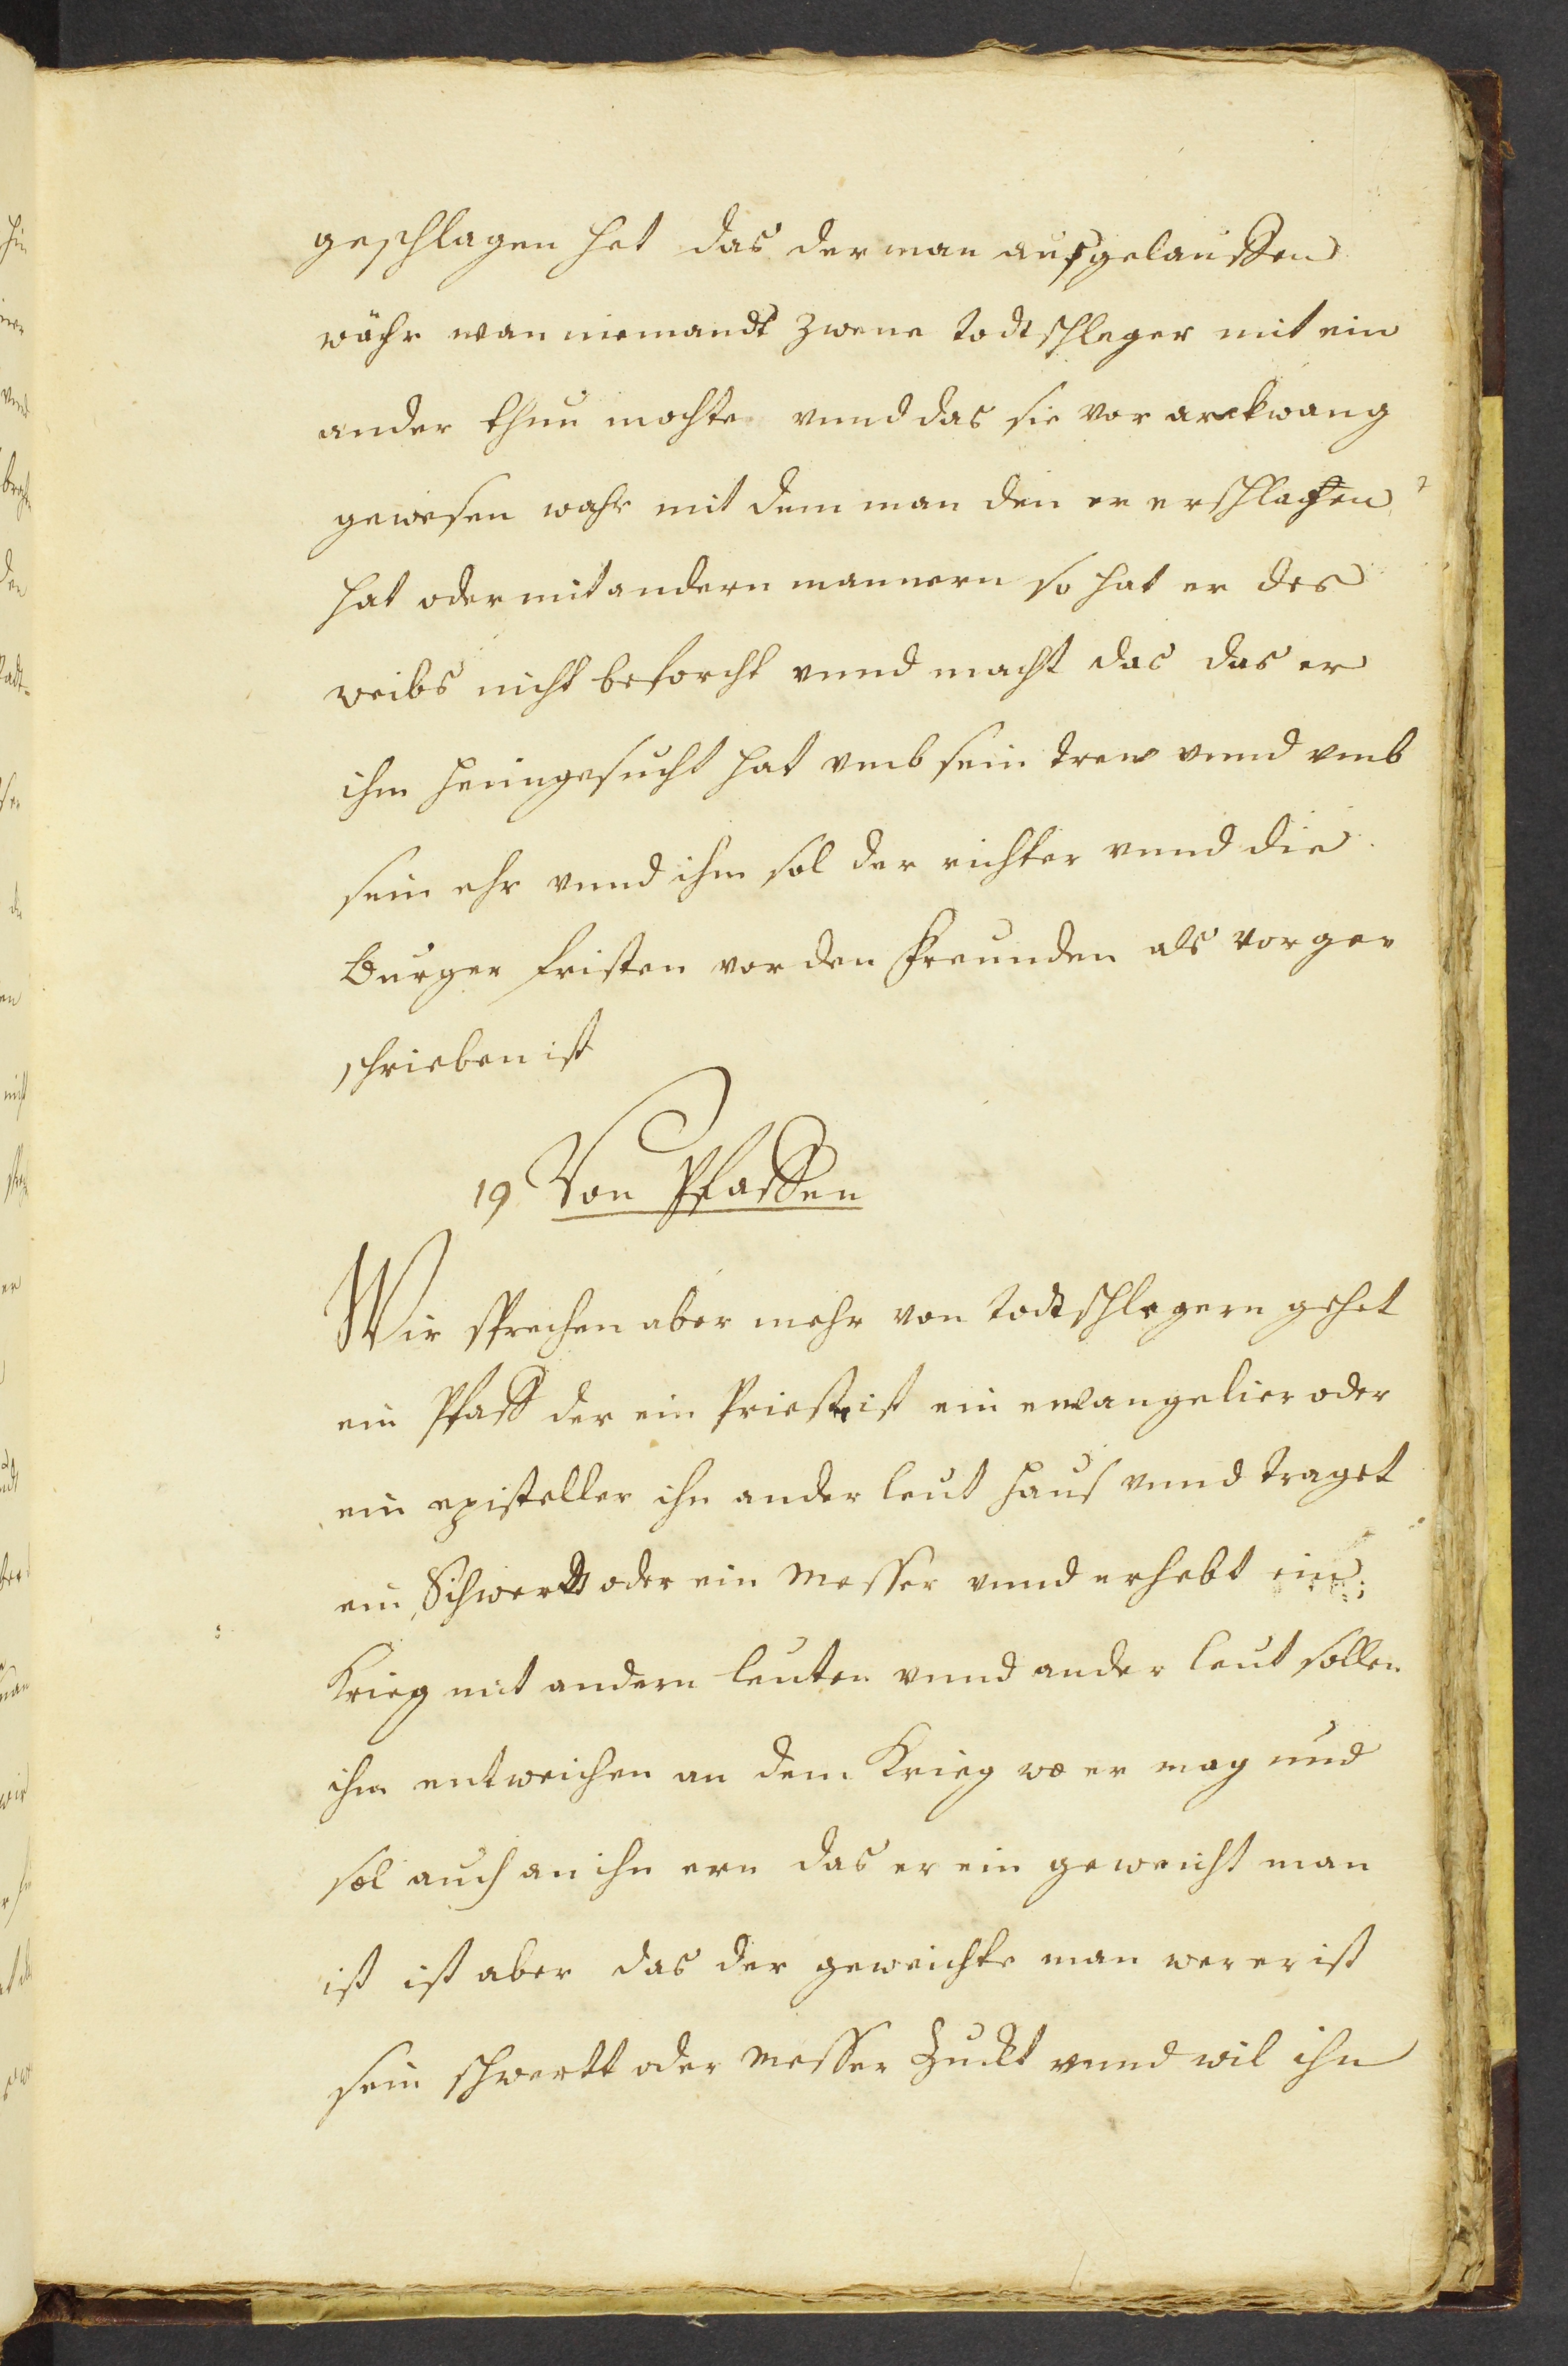 geschlagen het das der man ausgelauffen
währ wan niemandt zwene todtschleger mit ein
ander thun mochte vnnd das sie vor arckwang
gewesen wahr mit dem man den er erschlagen
hat oder mit andern mannern so hat er des
weibs nicht beforcht vnnd macht das das er
ihm heimgesucht hat vmb sein trew vnnd vmb
sein ehr vnnd ihm sol der richter vnnd die
Burger fristen vor den Freunden als vorge
schrieben ist
19 Von Pfaffen
Wir sprechen aber mehr von todtschlegern gehet
ein Pfaff der ein Priester ist ein evangelier oder
ein episteller ihn ander leut haus vnnd traget
ein Schwerdt oder ein Messer vnnd erhebt ein
Krieg mit andern leuten vnnd ander leut sollen
ihm entweichen an dem Krieg wo er mag und
sol auch an ihn ern das er ein geweicht man
ist ist aber das der geweichte man wer er ist
sein schwertt oder Messer Zuckt vnnd wil ihn